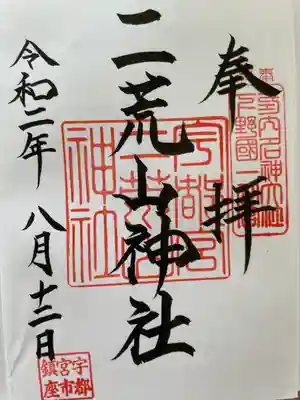 奉拝
二荒山神社
令和二年 八月十二日
宇都宮
二荒山
神社
宇都宮市鎮座